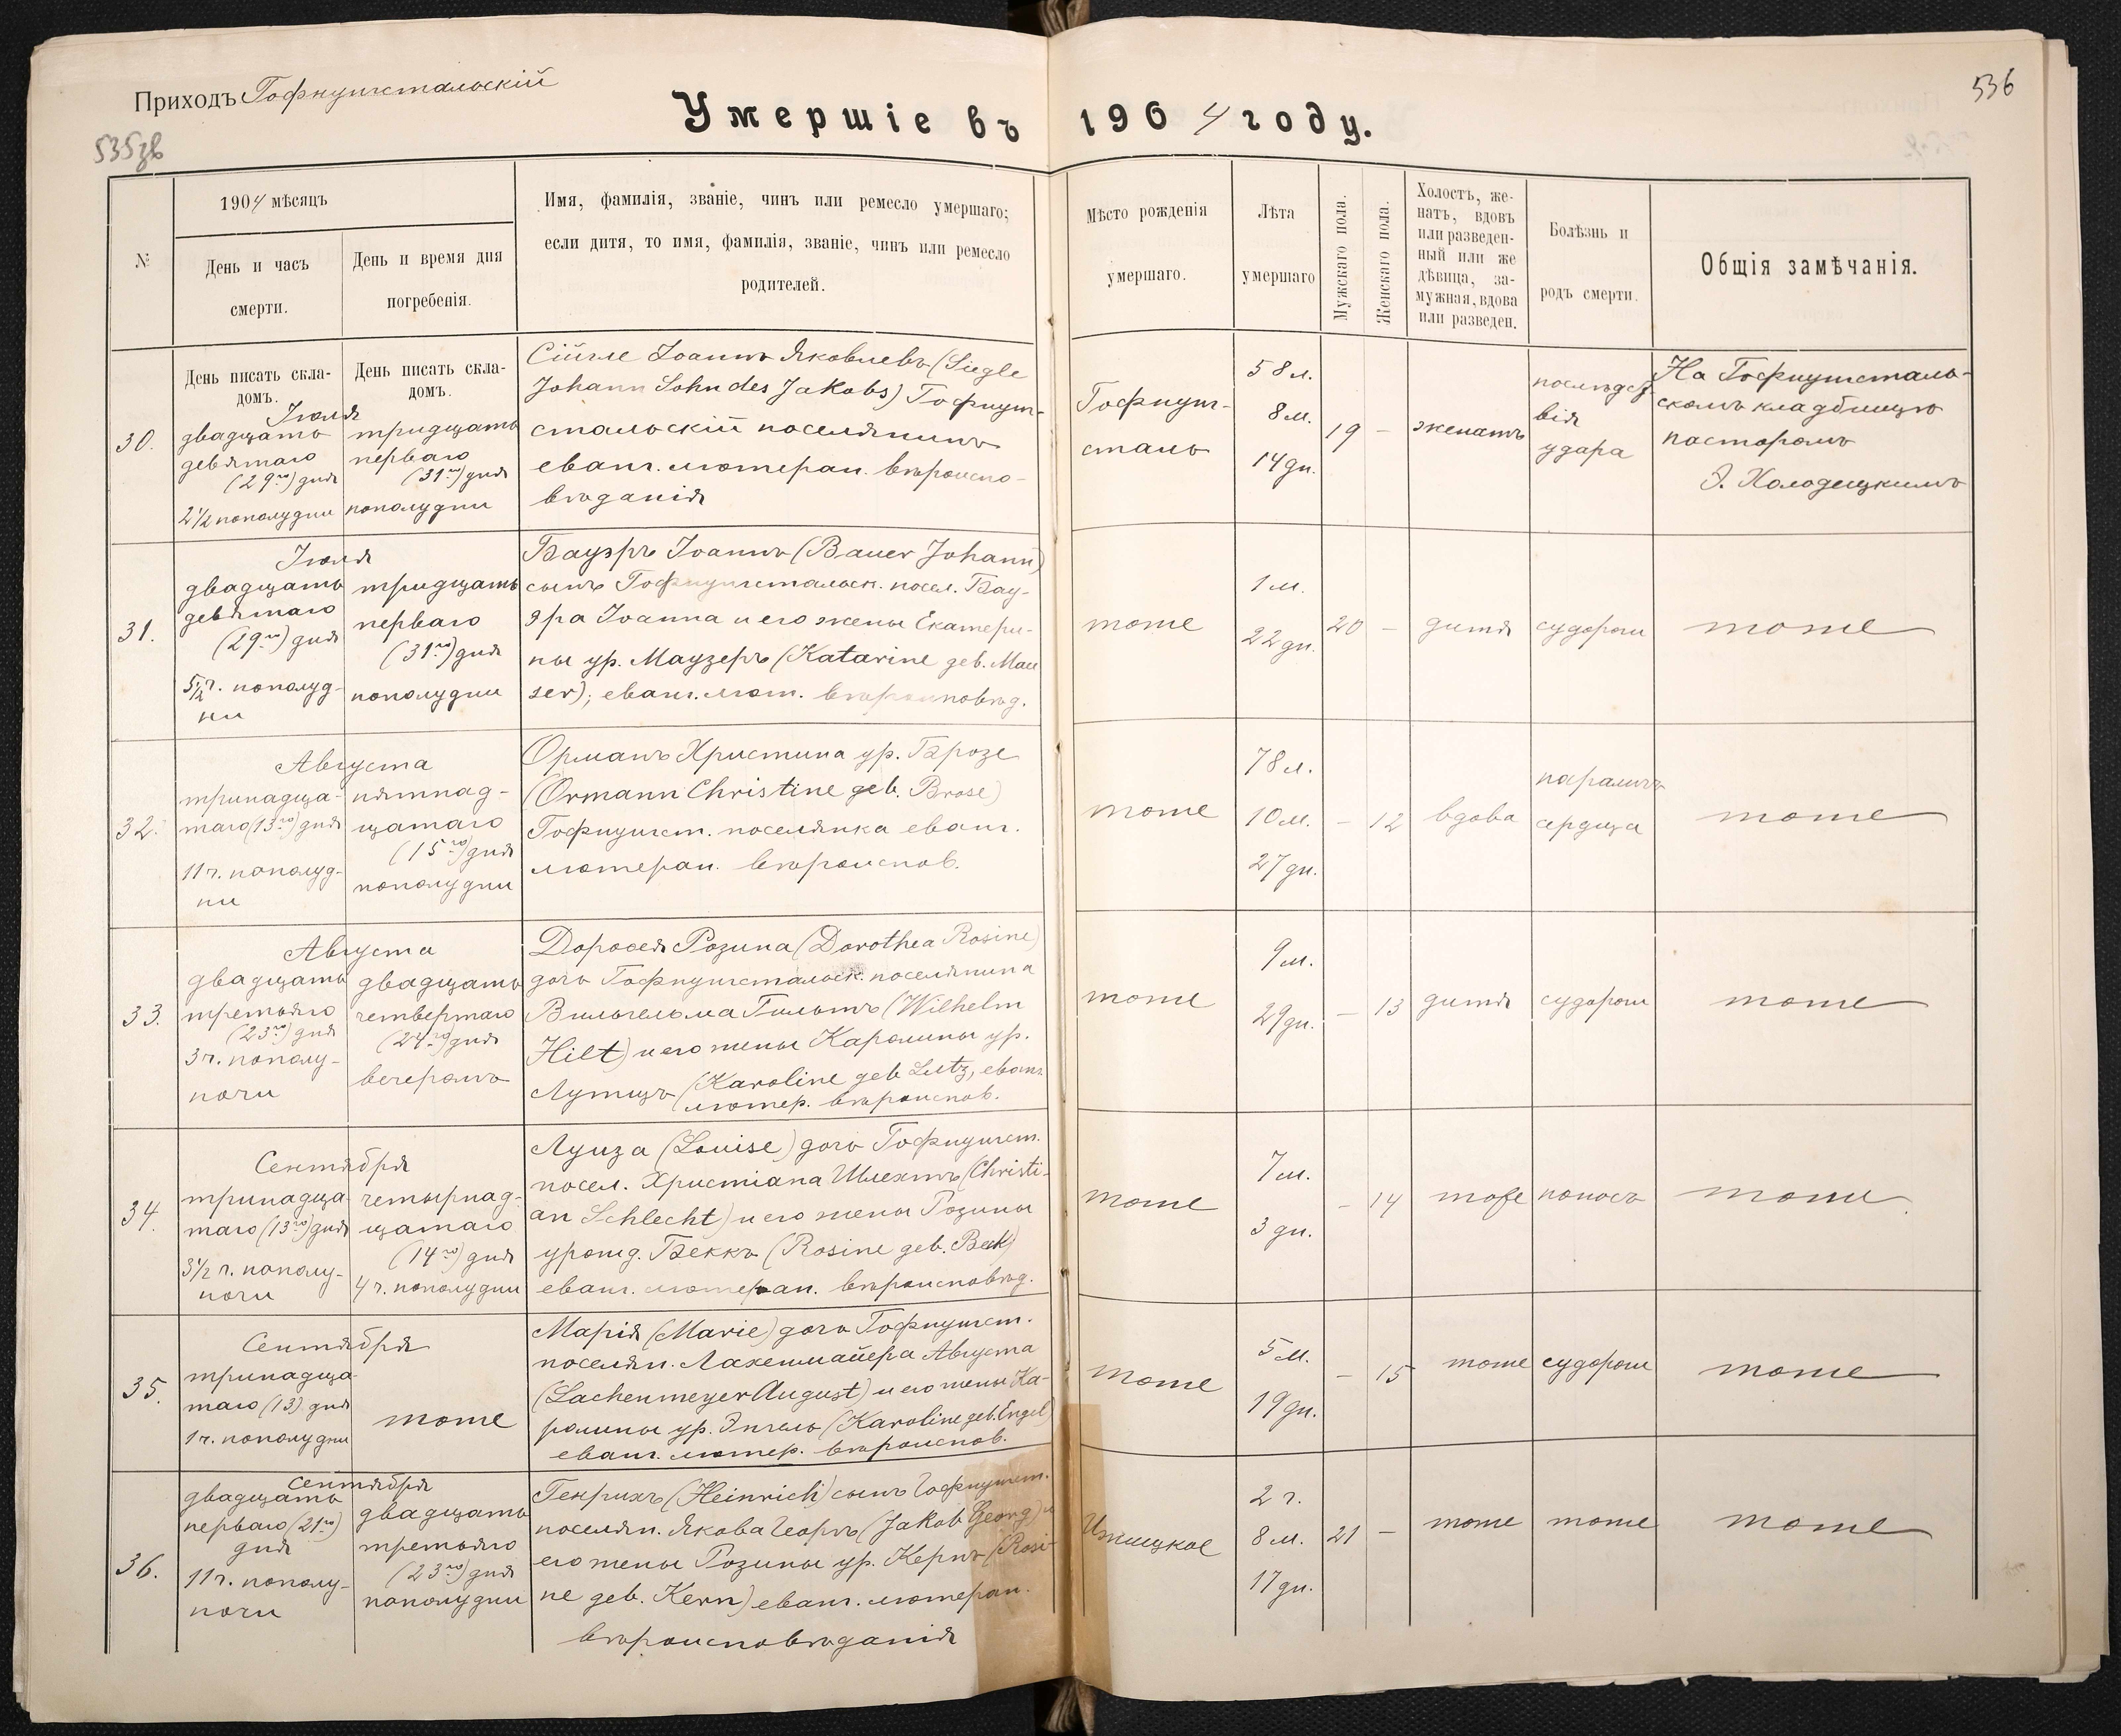 Приходъ Гофнунгстальскій
535 зв
536
Умершіе въ 1904 году.
№
1904 мѣсяцъ
День и часъ
смерти.
День и время дня
погребенія.
Имя, фамилія, званіе, чинъ или ремесло умершаго;
если дитя, то имя, фамилія, званіе, чинъ или ремесло
родителей.
Мѣсто рожденія
умершаго.
Лѣта
умершаго
Мужскаго пола.
Женскаго пола.
Холостъ, же-
натъ, вдовъ
или разведен-
ный или же
дѣвица, за-
мужная, вдова
или разведен.
Болѣзнь и
родъ смерти.
Общія замѣчанія.
30.
День писать скла-
домъ.
Іюля
двадцать
девятаго
(29го) дня
2 1/2 пополудни
День писать скла-
домъ.
тридцать
перваго
(31го) дня
пополудни
Сійгле Іоаннъ Яковлевъ (Siegle
Johann Sohn des Jakobs) Гофнунг-
стальскій поселянинъ
еванг. лютеран. вѣроиспо-
вѣданія
Гофнунг-
сталь
58 л.
8 м.
14 дн.
19
-
женатъ
послѣдст
вія
удара
На Гофнунгсталь-
скомъ кладбищѣ
пасторомъ
Э. Холодецкимъ
31.
Іюля
двадцать
девятаго
(29го) дня
5 1/2 ч. пополуд-
ни
тридцать
перваго
(31го) дня
пополудни
Бауэръ Іоаннъ (Bauer Johann)
сынъ Гофнунгстальск. посел. Бау-
эра Іоанна и его жены Екатери-
ны ур. Маузеръ (Katarine geb. Mau
ser); еванг. лют. вѣроисповѣд.
тоже
1 м.
22 дн.
20
-
дитя
судороги
тоже
32.
Августа
тринадца-
таго (13го) дня
11 ч. пополуд-
ни
пятнад-
цатаго
(15го) дня
пополудни
Орманъ Христина ур. Брозе
(Ormann Christine geb. Brose)
Гофнунгст. поселянка еванг.
лютеран. вѣроиспов.
тоже
78 л.
10 м.
27 дн.
-
12
вдова
параличъ
сердца
тоже
33.
Августа
двадцать
третьяго
(23го) дня
3 ч. пополу-
ночи
двадцать
четвертаго
(24го) дня
вечеромъ
Доротея Розина (Dorothea Rosine)
дочь Гофнунгстальск. поселянина
Вильгельма Гильтъ (Wilhelm
Hilt) и его жены Каролины ур.
Лутцъ (Karoline geb Lutz, еванг.
лютер. вѣроиспов.
тоже
9 м.
29 дн.
-
13
дитя
судороги
тоже
34.
Сентября
тринадца
таго (13го) дня
3 1/2 ч. пополу-
ночи
четырнад-
цатаго
(14го) дня
4 ч. пополудни
Луиза (Louise) дочь Гофнунгст.
посел. Христіана Шлехтъ (Christi-
an Schlecht) и его жены Розины
урожд. Беккъ (Rosine geb. Beck)
еванг. лютеран. вѣроисповѣд.
тоже
7 м.
3 дн.
-
14
тоже
поносъ
тоже
35.
Сентября
тринадца
таго (13) дня
1 ч. пополудни
тоже
Марія (Marie) дочь Гофнунгст.
поселян. Лахенмайера Августа
(Lachenmeyer August) и его жены Ка-
ролины ур. Энгель (Karoline geb. Engel)
еванг. лютер. вѣроиспов.
тоже
5 м.
19 дн.
-
15
тоже
судороги
тоже
36.
Сентября
двадцать
перваго (21го)
дня
11 ч. пополу-
ночи
двадцать
третьяго
(23го) дня
пополудни
Генрихъ (Heinrich) сынъ Гофнунгст.
поселян. Якова Георгъ (Jakob Georg) и
его жены Розины ур. Кернъ (Rosi-
ne geb. Kern) еванг. лютеран.
вѣроисповѣданія
2 г.
8 м.
17 дн.
21
-
тоже
тоже
тоже